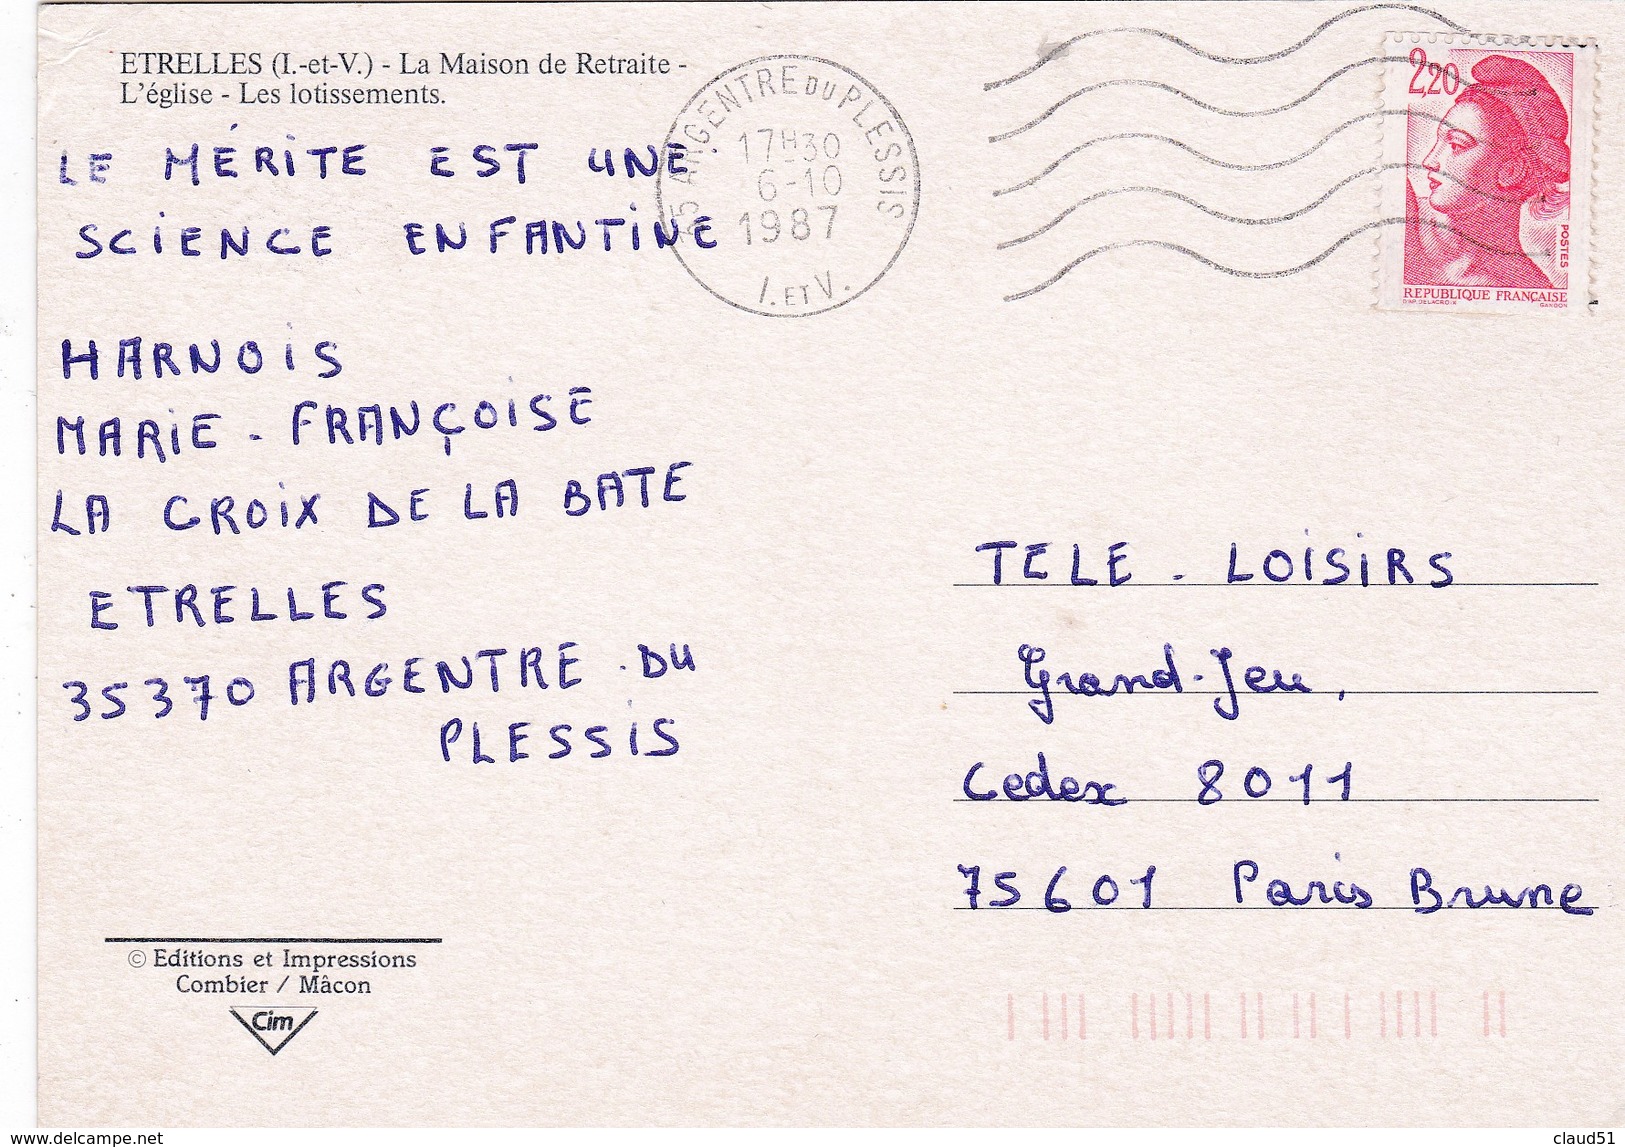 ETRELLES (I.-et-V.) - La Maison de Retraite -
L'église - Les lotissements.
LE MÉRITE EST UNE
SCIENCE ENFANTINE
HARNOIS
MARIE - FRANÇOISE
LA CROIX DE LA BATE
ETRELLES
35370 ARGENTRE . DU
PLESSIS
© Editions et Impressions
Combier / Mâcon
Cim
35 ARGENTRE DU PLESSIS
17H30
6-10
1987
I. ET V.
2,20
POSTES
REPUBLIQUE FRANÇAISE
D'AP. DELACROIX GANDON
TELE - LOISIRS
Grand-Jeu,
Cedex 8011
75601 Paris Brune
www.delcampe.net
claud51